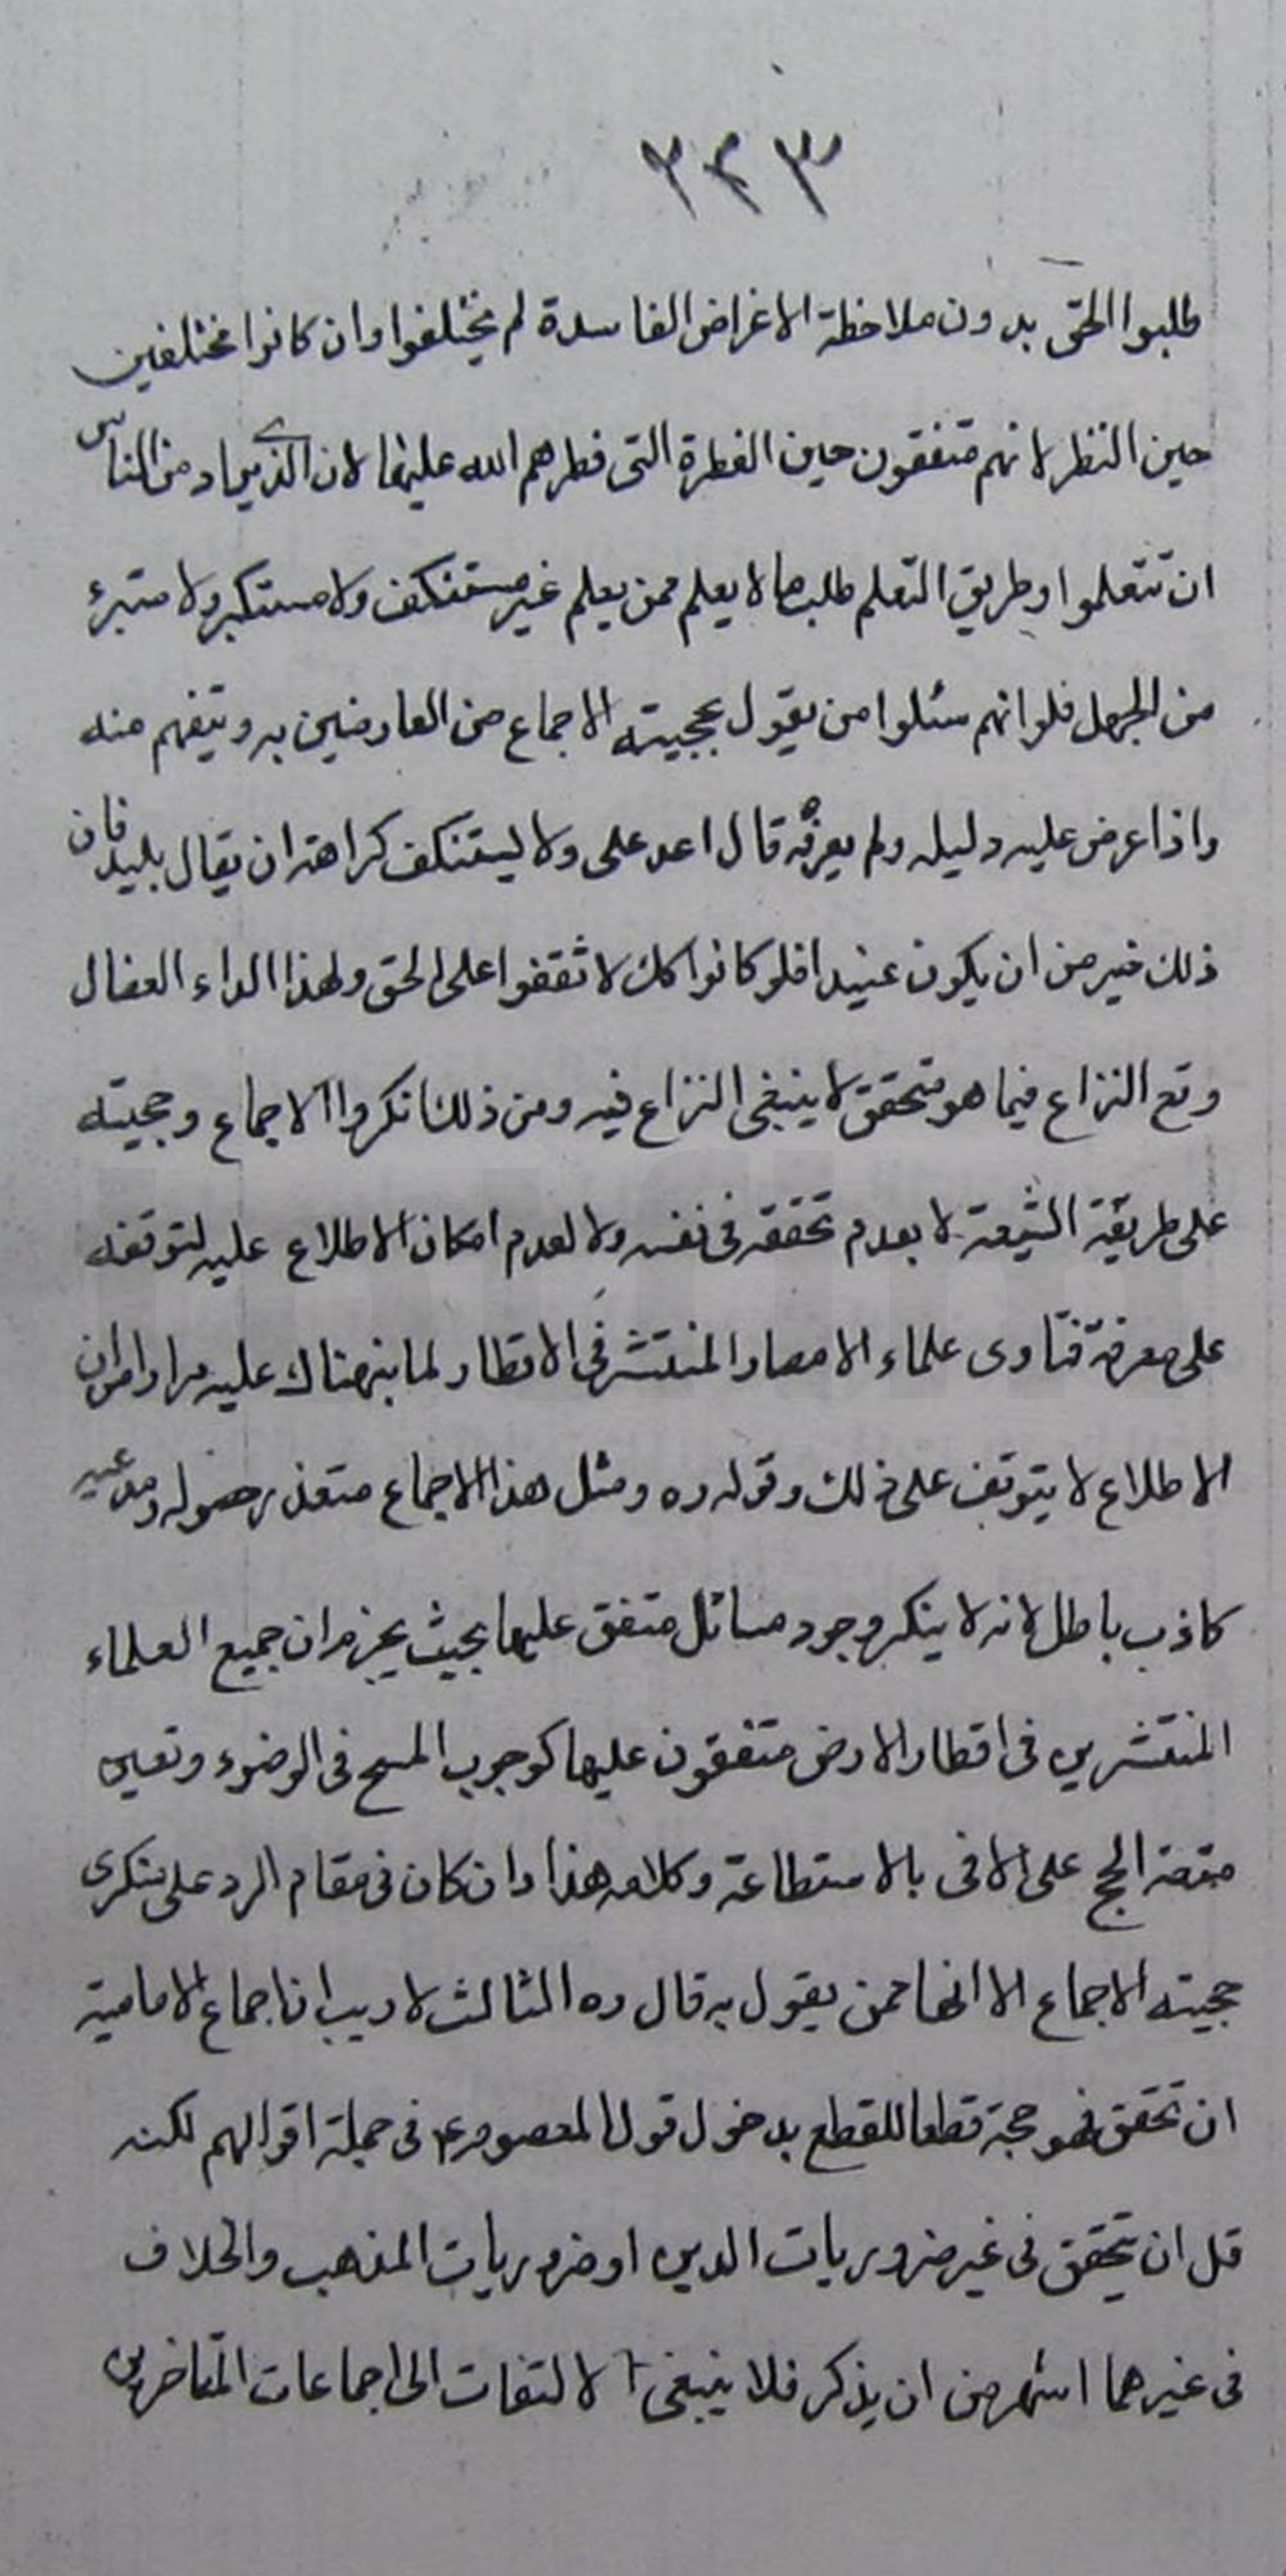 ٢٤٣
طلبوا الحق بدون ملاحظة الاغراض الفاسدة لم يختلفوا وان كانوا مختلفين
حين النظر لانهم متفقون حين الفطرة التى فطرهم الله عليها لان الذي يراد من الناس
ان تتعلموا وطريق التعلم طلب ما لا يعلم ممن يعلم غير مستنكف ولا مستكبر ولا متبرئ
من الجهل فلو انهم سئلوا من يقول بحجيته الاجماع من العارفين به و يتفهم منه
واذا عرض عليه دليله ولم يعرفه قال اعد على ولا ليستنكف كراهة ان يقال بليد فان
ذلك خير من ان يكون عنيدا فلو كانوا كك لاتفقوا على الحق ولهذا الداء العضال
وقع النزاع فيما هو متحقق لا ينبغى النزاع فيه ومن ذلك انكروا الاجماع وحجيته
على طريقة الشيعة لا بعدم تحققه فى نفسه ولا لعدم امكان الاطلاع عليه لتوقفه
على معرفة فتاوى علماء الامصار المنتشر فى الاقطار لما نبهناك عليه مرارا من ان
الاطلاع لا يتوقف على ذلك وقوله ره ومثل هذا الاجماع متعذر حصوله ومدعيه
كاذب باطل لانه لا ينكر وجود مسائل متفق عليها بحيث يجزم ان جميع العلماء
المنتشرين فى اقطار الارض متفقون عليها كوجوب المسح فى الوضوء وتعين
متعة الحج على الافاقى بالاستطاعة وكلامه هذا وان كان فى مقام الرد على منكرى
حجيته الاجماع الا انها ممن يقول به قال ره الثالث لا ريب ان اجماع الامامية
ان تحقق فهو حجة قطعا للقطع بدخول قول المعصوم ع فى جملة اقوالهم لكنه
قل ان يتحقق فى غير ضروريات الدين او ضروريات المذهب والخلاف
فى غيرهما اشهر من ان يذكر فلا ينبغى الالتفات الى اجماعات المتاخرين